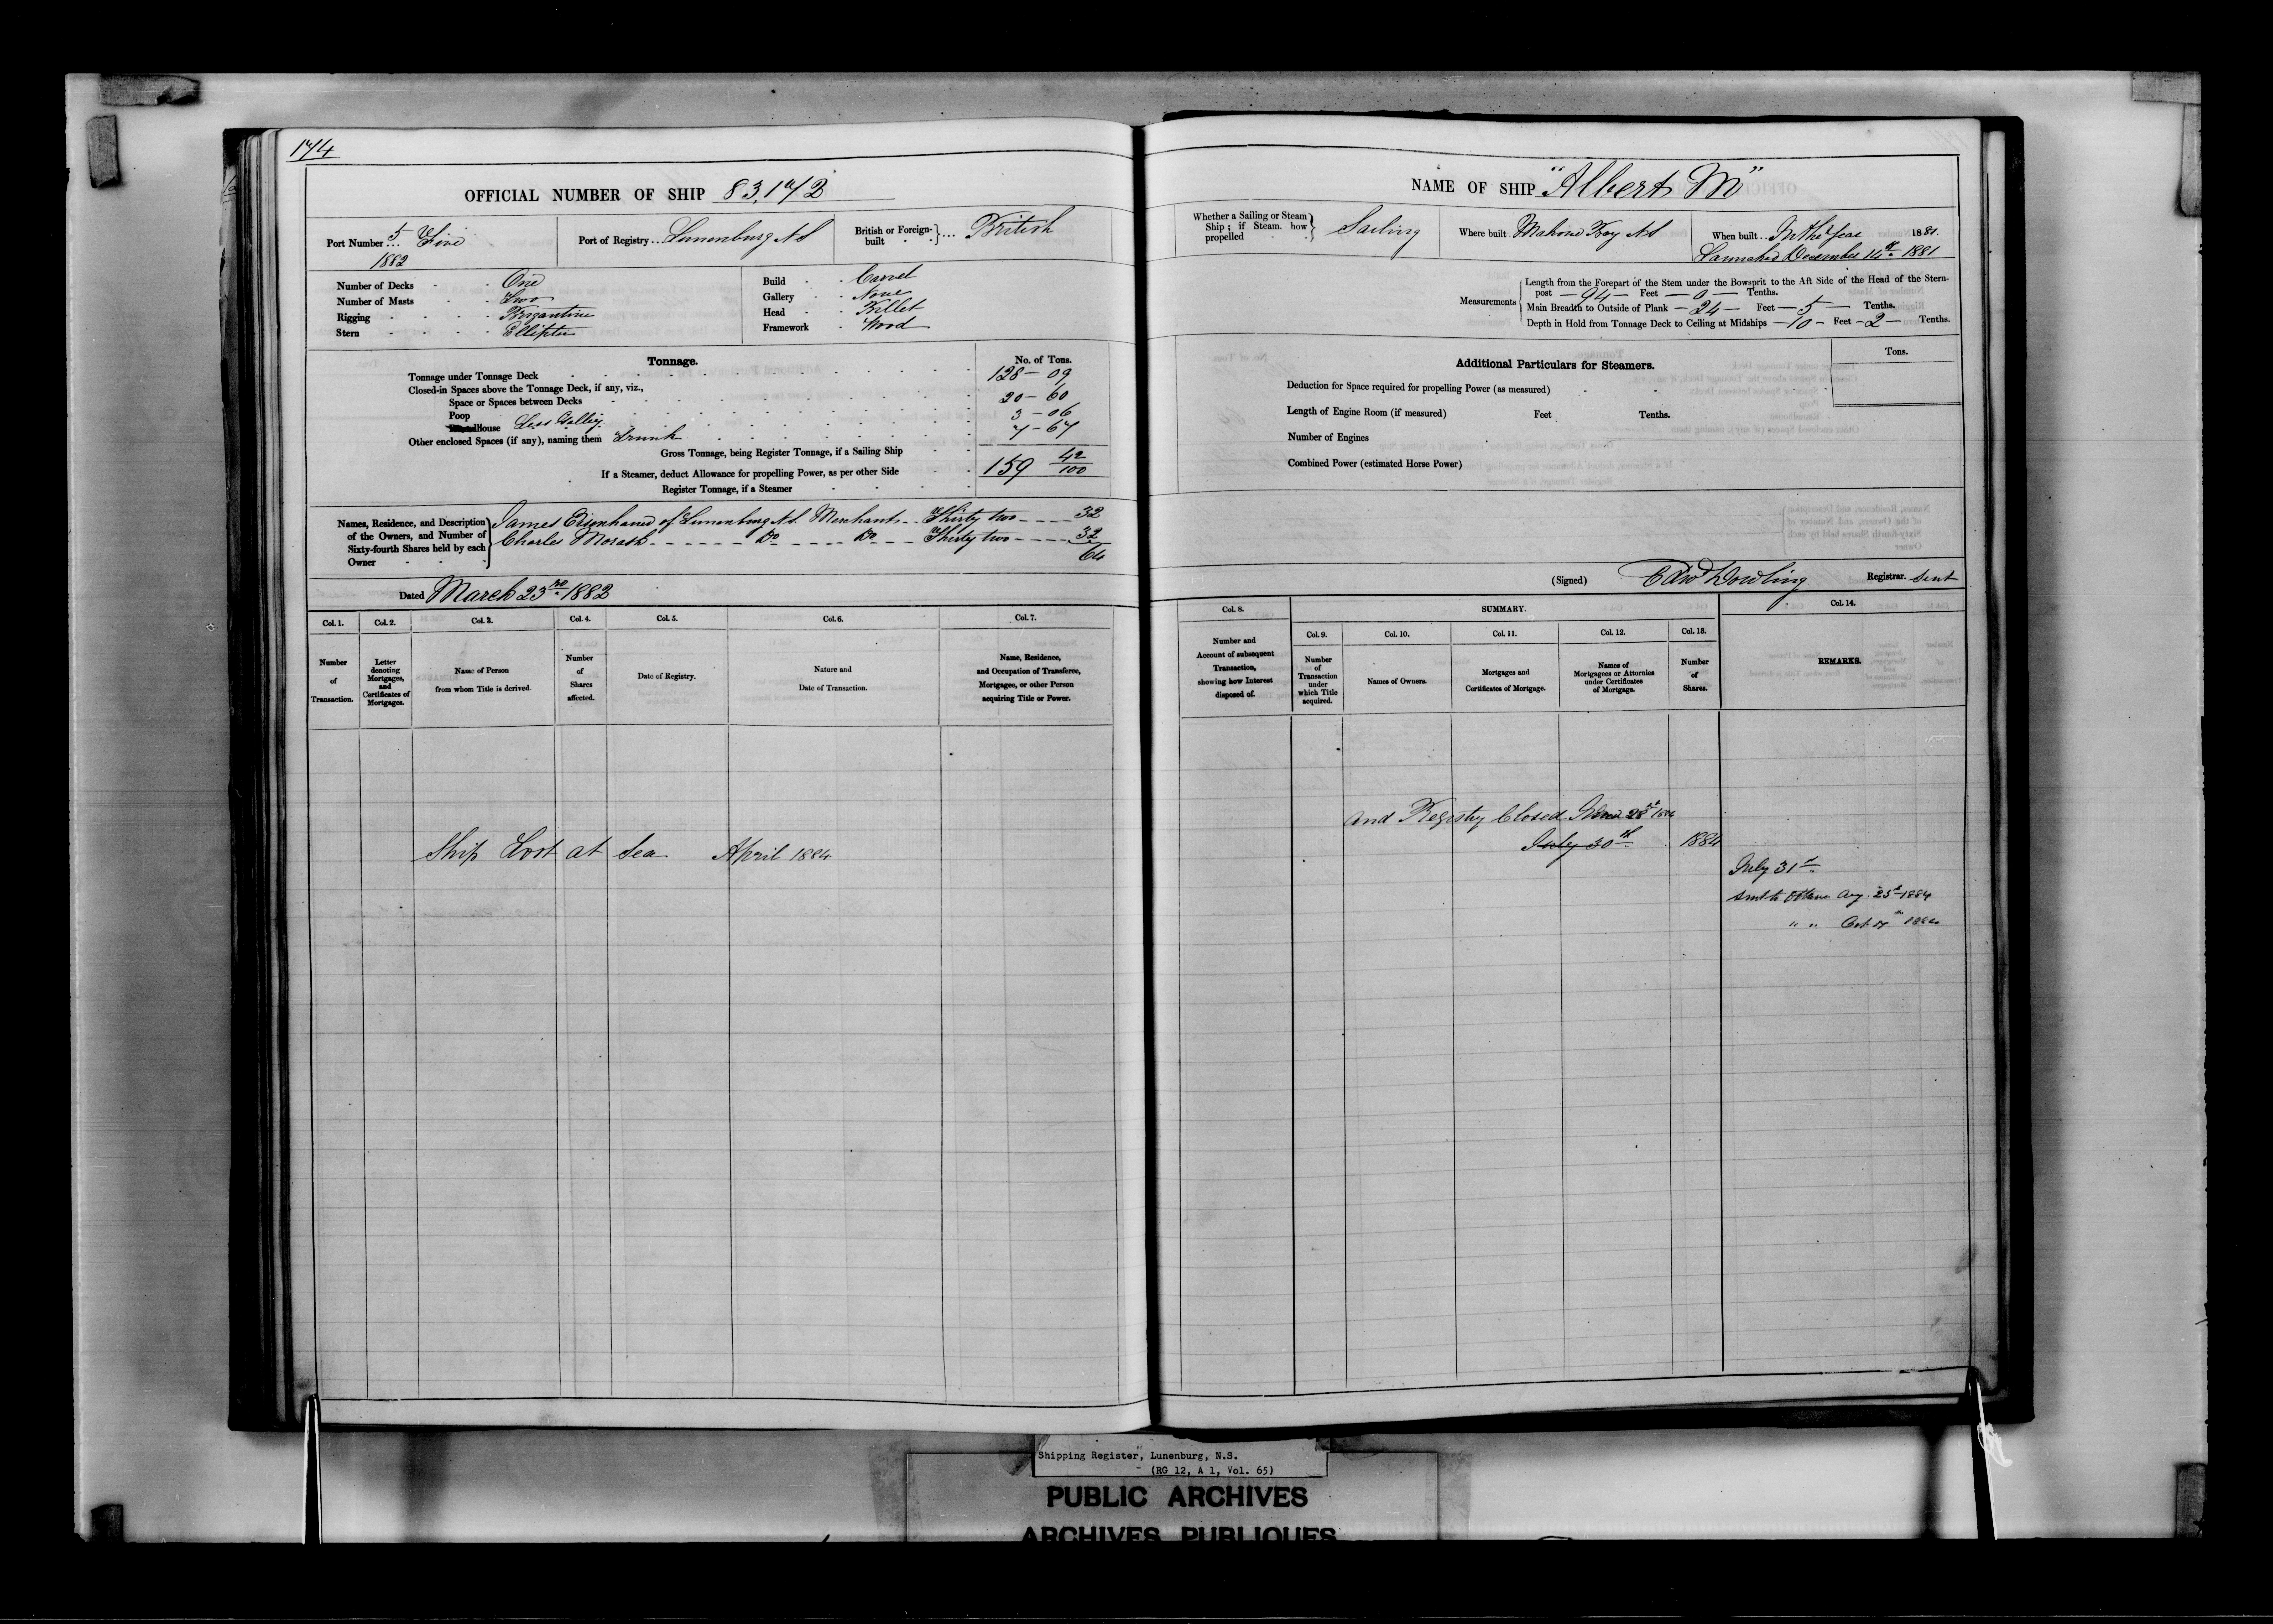 174
OFFICIAL NUMBER OF SHIP 83,172
Port Number 5 ... Five
1882
Port of Registry ... Lunenburg N.S
British or Foreign-built ... British
Number of Decks - - One
Number of Masts - - Two
Rigging - - - - Brigantine
Stern - - - - Elliptic
Build - - Carvel
Gallery - - None
Head - - Billet
Framework - Wood
Tonnage.
No. of Tons.
Tonnage under Tonnage Deck 128 - 09
Closed-in Spaces above the Tonnage Deck, if any, viz.,
Space or Spaces between Decks
Poop 20 - 60
house Less Galley 3 - 06
Other enclosed Spaces (if any), naming them Trunk 7 - 67
Gross Tonnage, being Register Tonnage, if a Sailing Ship
159 42/100
If a Steamer, deduct Allowance for propelling Power, as per other Side
Register Tonnage, if a Steamer
Names, Residence, and Description of the Owners, and Number of Sixty-fourth Shares held by each Owner
James Eisenhauer of Lunenburg N.S. Merchant .. Thirty two ---- 32
Charles Morash ------ Do ---- Do --- Thirty two ---- 32
64
Dated March 23rd 1882
Col. 1. Col. 2. Col. 3. Col. 4. Col. 5. Col. 6. Col. 7.
Number of Transaction.
Letter denoting Mortgages, and Certificates of Mortgages.
Name of Person from whom Title is derived.
Number of Shares affected.
Date of Registry.
Nature and Date of Transaction.
Name, Residence, and Occupation of Transferee, Mortgagee, or other Person acquiring Title or Power.
Ship Lost at Sea April 1884
NAME OF SHIP "Albert M"
Whether a Sailing or Steam Ship; if Steam, how propelled - Sailing
Where built . Mahone Bay N.S
When built ... In the Year 1881.
Launched December 14th 1881
Measurements
Length from the Forepart of the Stem under the Bowsprit to the Aft Side of the Head of the Stern-
post — 94 — Feet — 0 — Tenths.
Main Breadth to Outside of Plank — 24 — Feet — 5 — Tenths.
Depth in Hold from Tonnage Deck to Ceiling at Midships — 10 — Feet — 2 — Tenths.
Additional Particulars for Steamers.
Tons.
Deduction for Space required for propelling Power (as measured)
Length of Engine Room (if measured) Feet Tenths.
Number of Engines
Combined Power (estimated Horse Power)
(Signed) Edw Dowling Registrar. Sent
Col. 8.
SUMMARY.
Col. 14.
Col. 9. Col. 10. Col. 11. Col. 12. Col. 13.
Number and Account of subsequent Transaction, showing how Interest disposed of.
Number of Transaction under which Title acquired.
Names of Owners.
Mortgages and Certificates of Mortgage.
Names of Mortgagees or Attornies under Certificates of Mortgage.
Number of Shares.
REMARKS.
and Registry Closed
July 30th 1884
July 31st
sent to Ottawa Aug 23d 1884
" " Oct
Shipping Register, Lunenburg, N.S.
- (RG 12, A 1, Vol. 65)
PUBLIC ARCHIVES
ARCHIVES PUBLIQUES